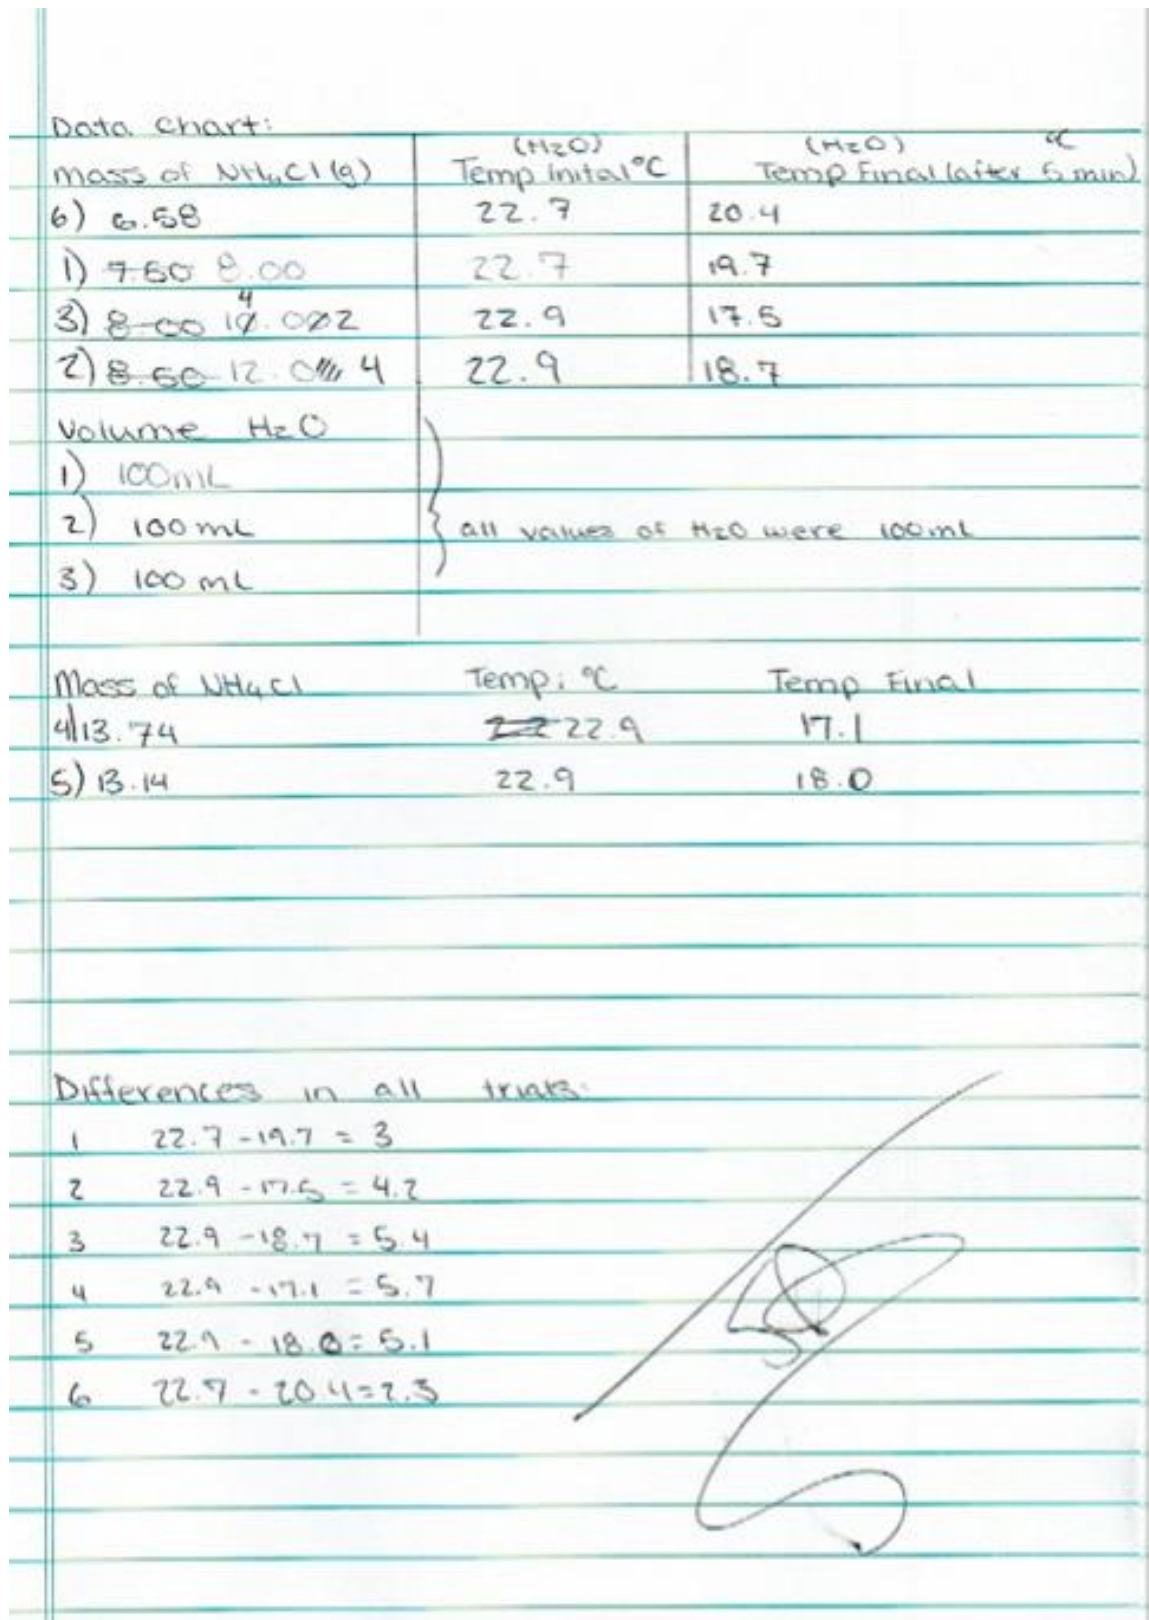 Data Chart:
mass of NH4Cl (g) (H2O) Temp Inital °C (H2O) Temp Final (after 5 min) °C
6) 6.58 22.7 20.4
1) 7.50 8.00 22.7 19.7
3) 8.00 14.002 22.9 17.5
2) 8.50 12.0 4 22.9 18.7
Volume H2O
1) 100mL
2) 100 mL all values of H2O were 100mL
3) 100 mL
Mass of NH4Cl Temp: °C Temp Final
4) 13.74 22 22.9 17.1
5) 13.14 22.9 18.0
Differences in all trials:
1 22.7 - 19.7 = 3
2 22.9 - 17.5 = 4.2
3 22.9 - 18.7 = 5.4
4 22.9 - 17.1 = 5.7
5 22.9 - 18.0 = 5.1
6 22.7 - 20.4 = 2.3